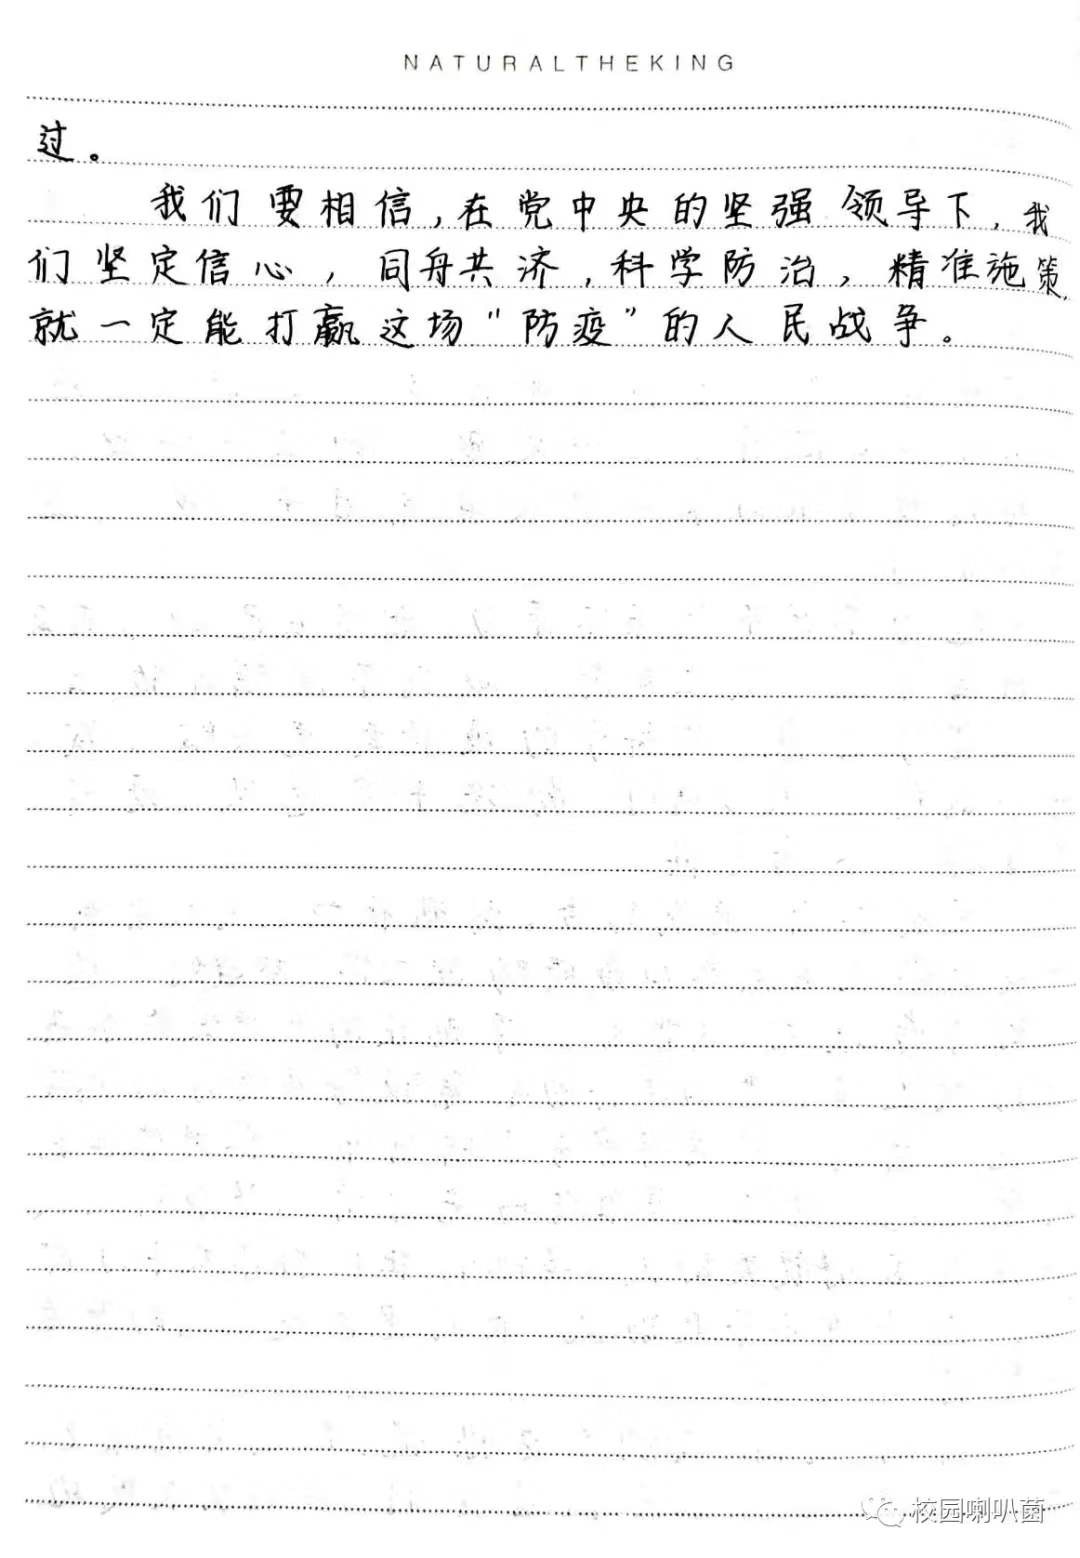 NATURALTHEKING
过。
我们要相信,在党中央的坚强领导下,我
们坚定信心,同舟共济,科学防治,精准施策,
就一定能打赢这场“防疫”的人民战争。
校园喇叭菌